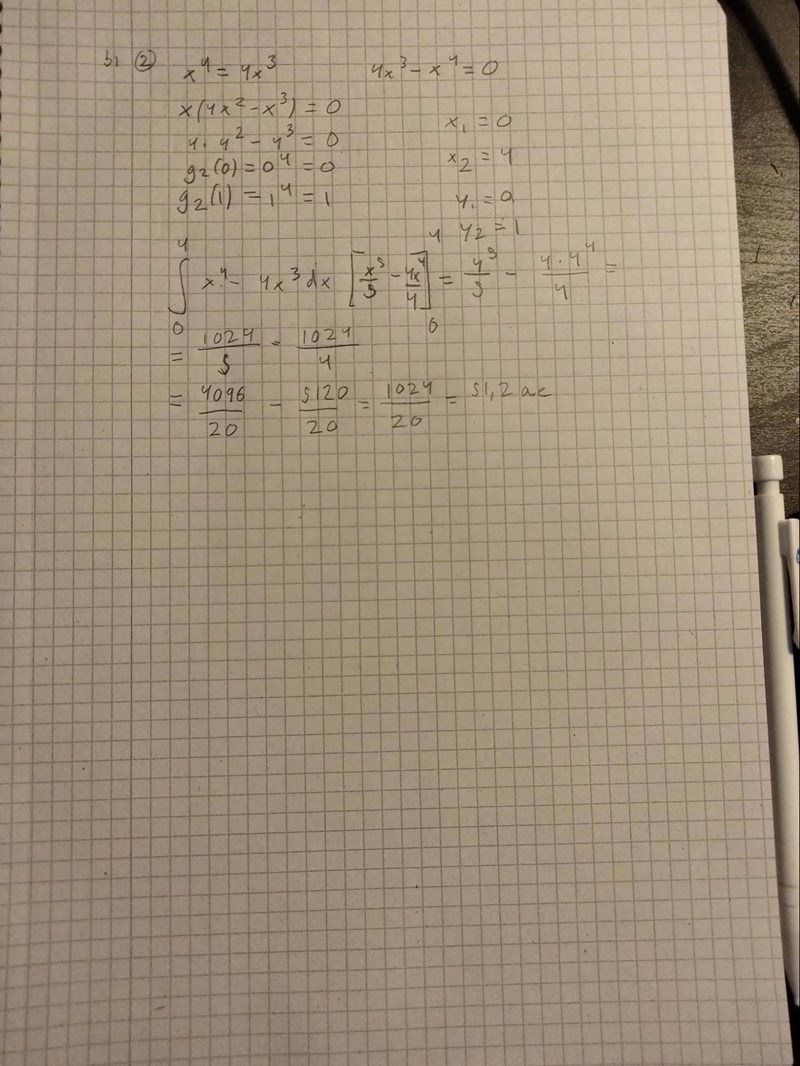 b) ② x⁴ = 4x³ 4x³ - x⁴ = 0
x(4x² - x³) = 0
x₁ = 0
4 · 4² - 4³ = 0
x₂ = 4
g₂(0) = 0⁴ = 0
g₂(1) = 1⁴ = 1
y₁ = 0
y₂ = 1
∫₀⁴ x⁴ - 4x³ dx [x⁵/5 - 4x⁴/4]₀⁴ = 4⁵/5 - 4·4⁴/4 =
= 1024/5 - 1024/4
= 4096/20 - 5120/20 = 1024/20 = 51,2 a.e